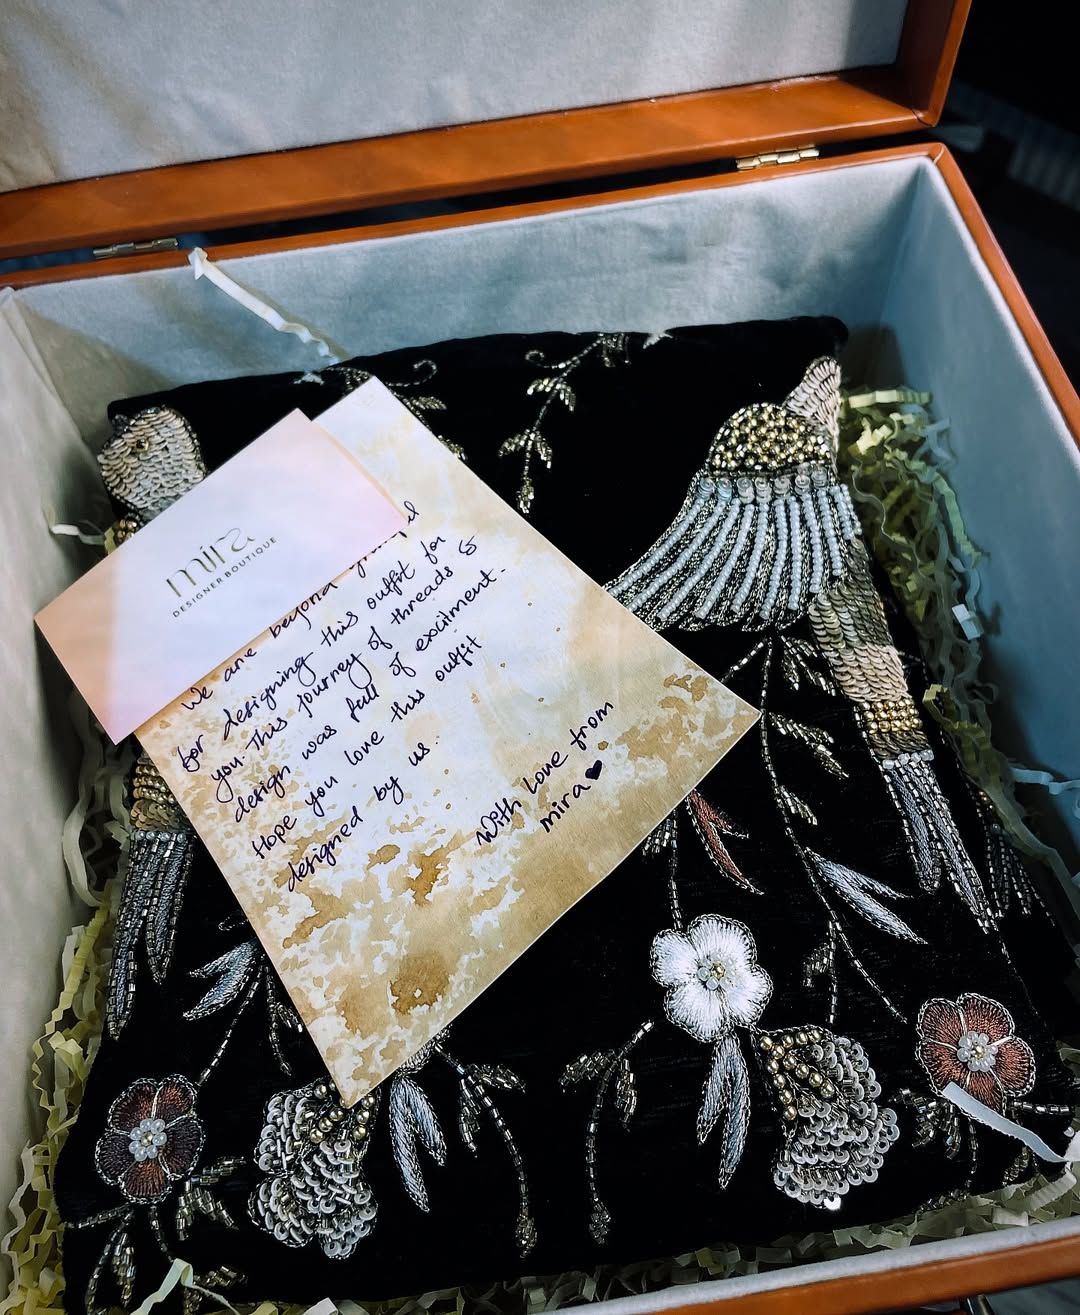 mira
DESIGNER BOUTIQUE
We are beyond grateful
for designing this outfit for
you. This journey of threads &
design was full of excitment.
Hope you love this outfit
designed by us.
With Love from
mira ♥